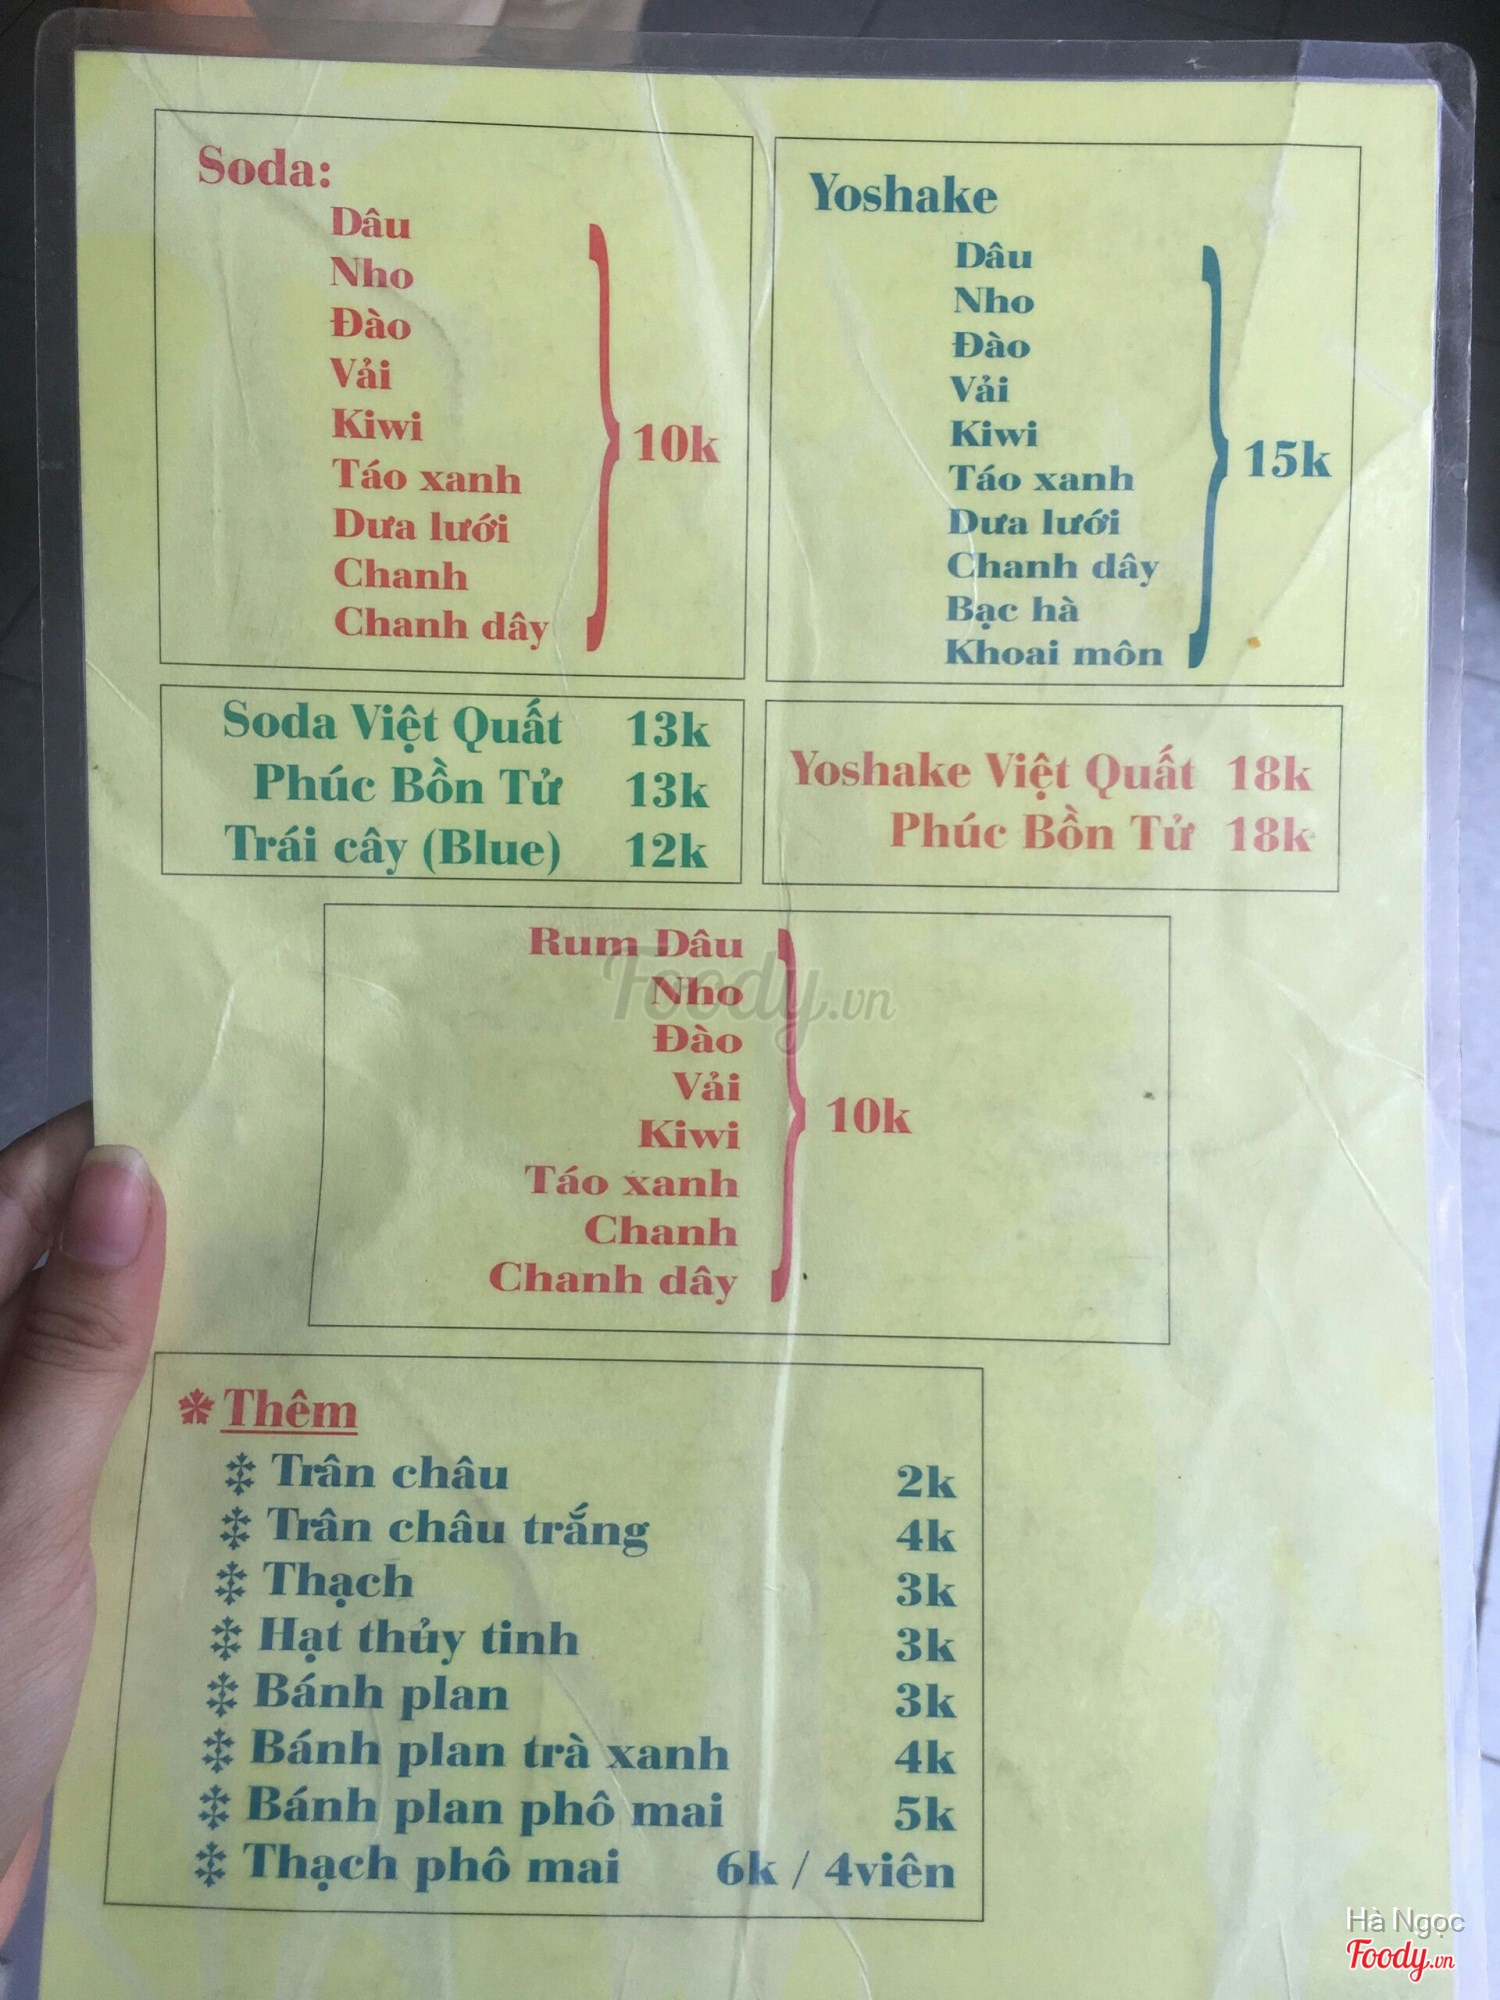 Soda:
Dâu
Nho
Đào
Vải
Kiwi
Táo xanh
Dưa lưới
Chanh
Chanh dây
10k
Yoshake
Dâu
Nho
Đào
Vải
Kiwi
Táo xanh
Dưa lưới
Chanh dây
Bạc hà
Khoai môn
15k
Soda Việt Quất 13k
Phúc Bồn Tử 13k
Trái cây (Blue) 12k
Yoshake Việt Quất 18k
Phúc Bồn Tử 18k
Rum Dâu
Nho
Đào
Vải
Kiwi
Táo xanh
Chanh
Chanh dây
10k
Foody.vn
Thêm
Trân châu 2k
Trân châu trắng 4k
Thạch 3k
Hạt thủy tinh 3k
Bánh plan 3k
Bánh plan trà xanh 4k
Bánh plan phô mai 5k
Thạch phô mai 6k / 4viên
Hà Ngọc
Foody.vn